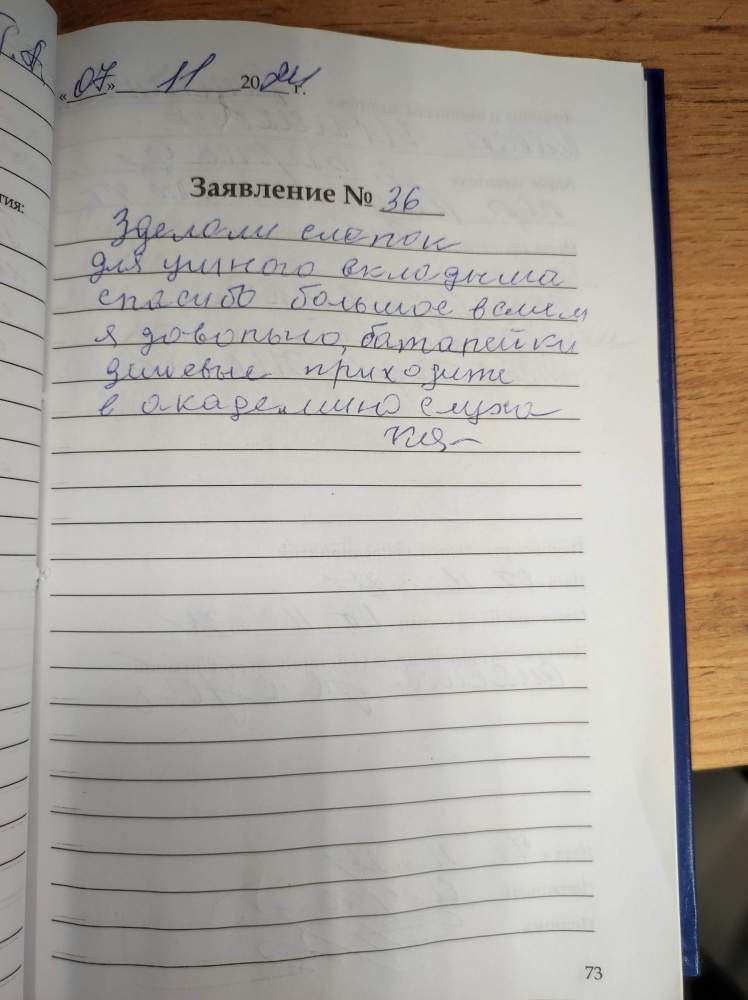 «07» 11 2024 г.
тия:
Заявление № 36
Зделали слапок
для ушного вкладыша
спасибо большое всем
я довольно, батарейки
дишевые приходите
в академию слуха
73